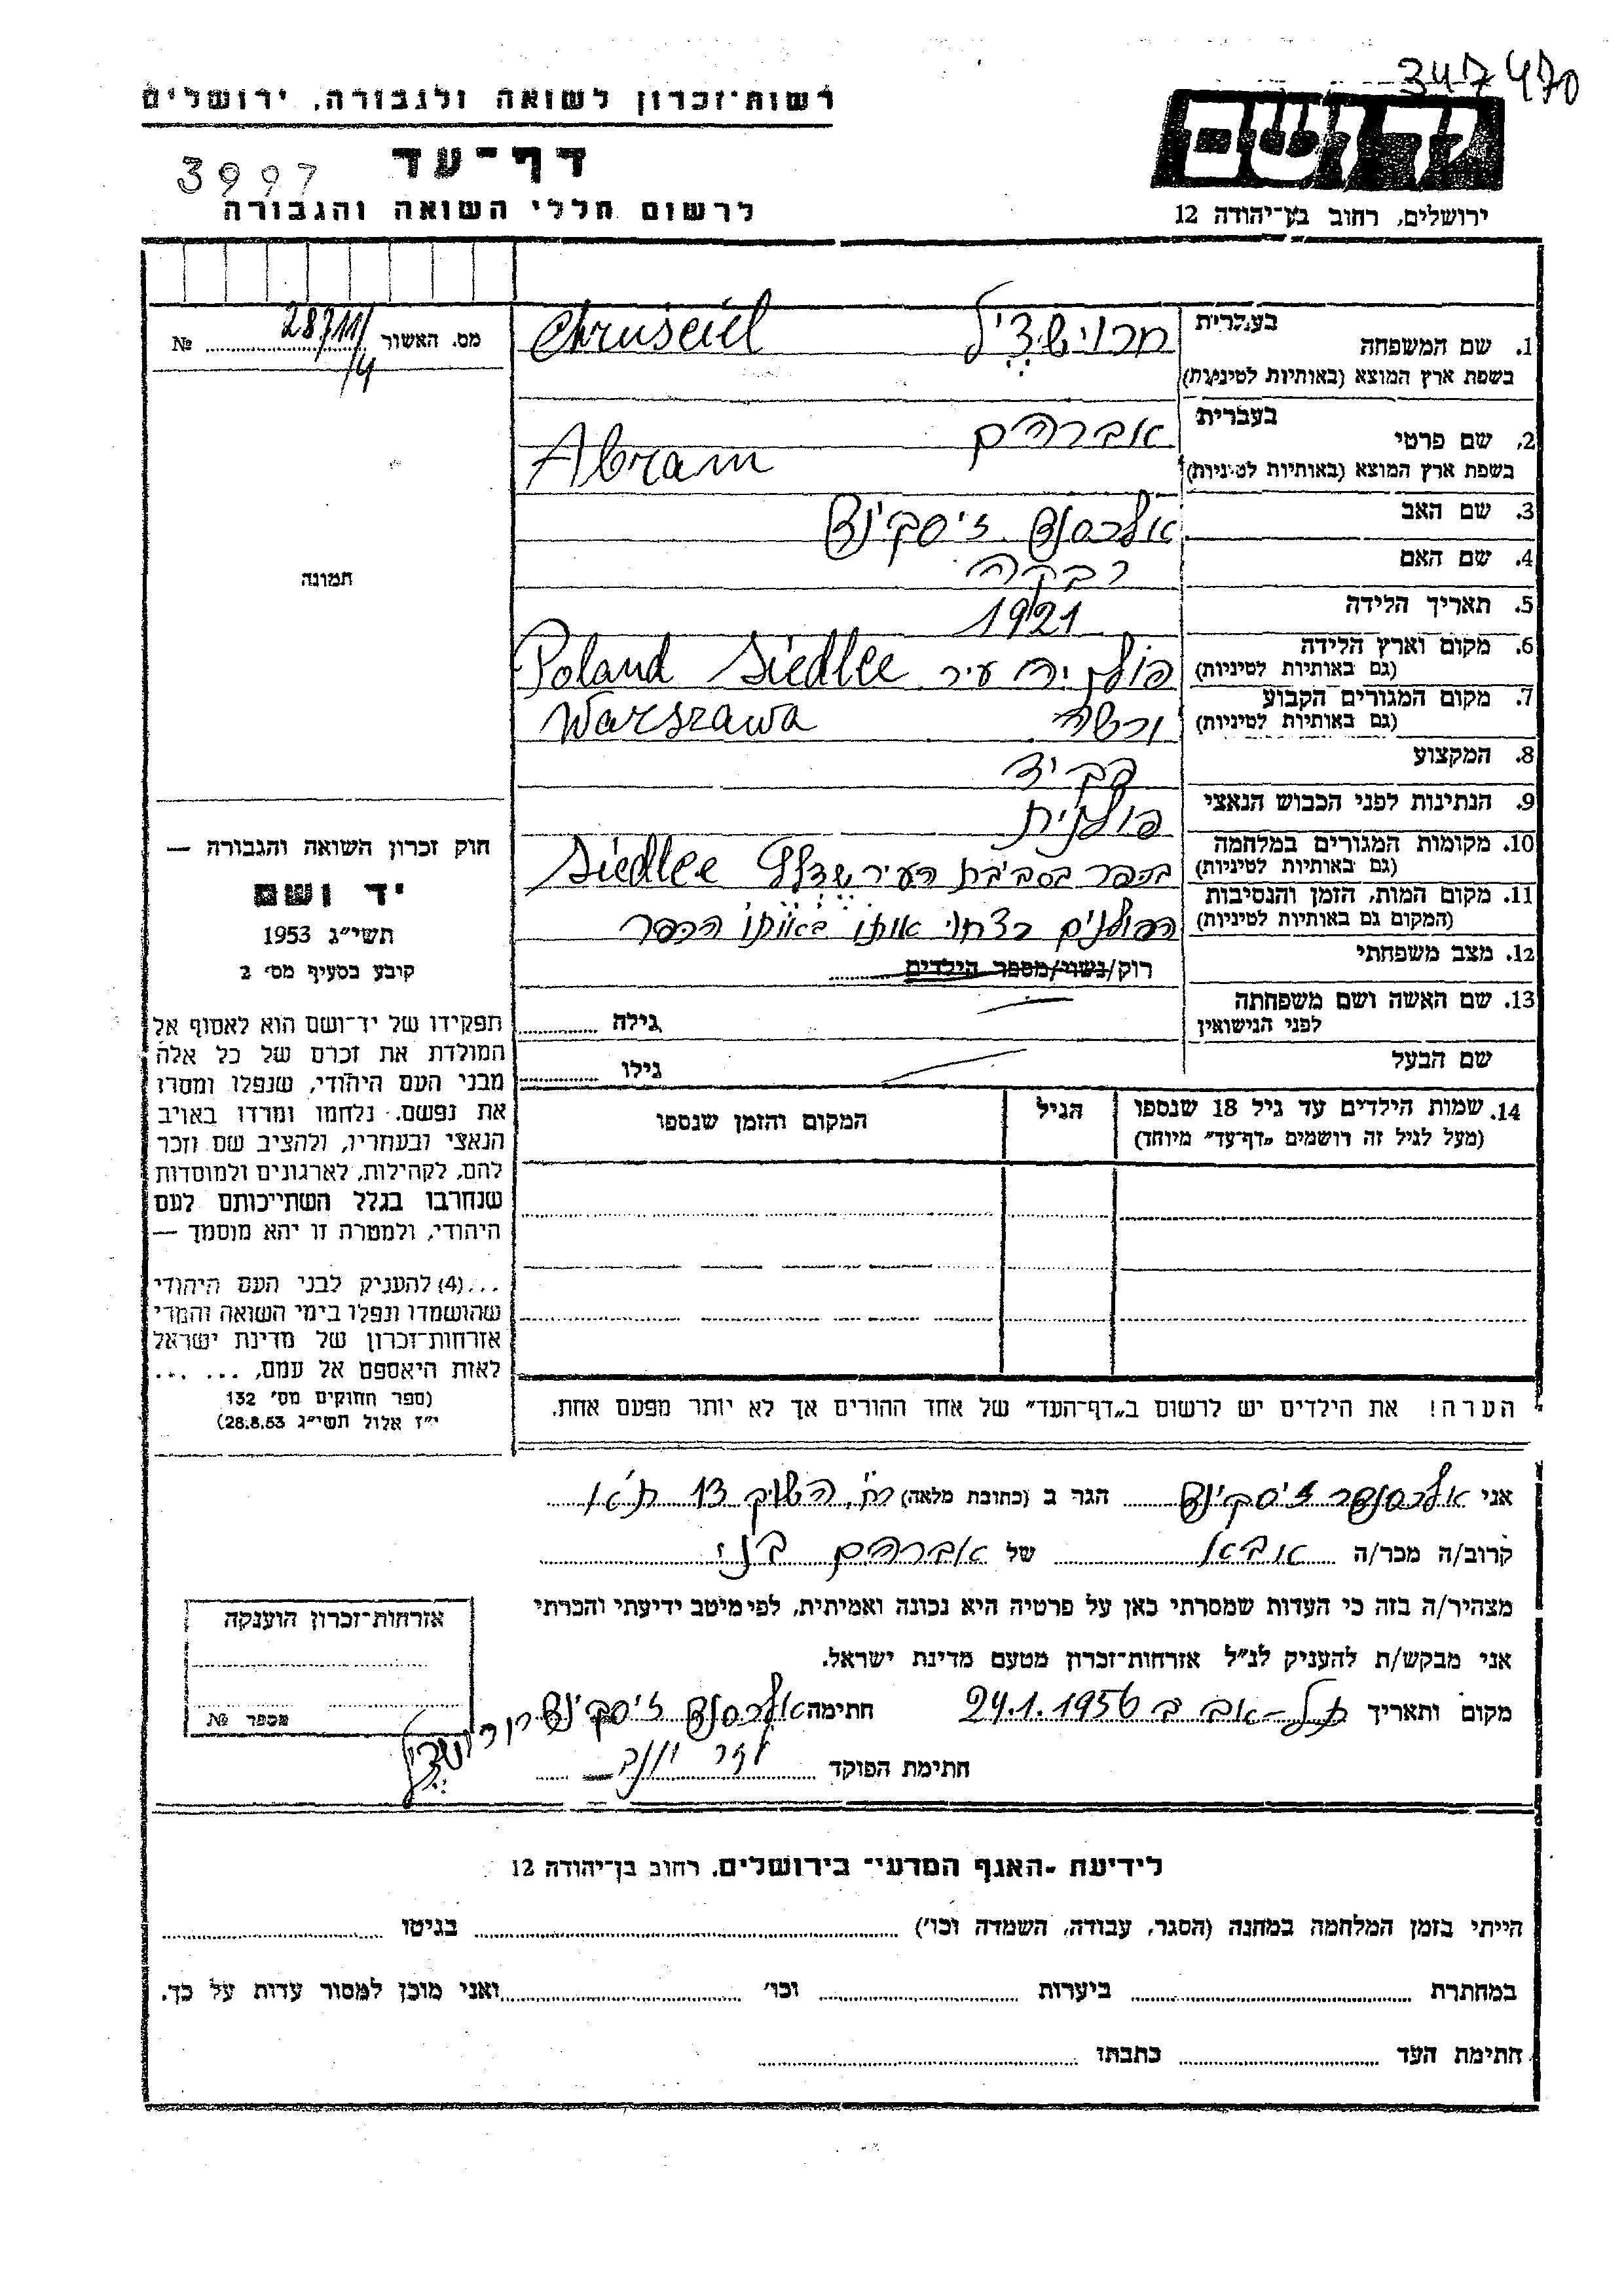 347470
רשות־זכרון לשואה ולגבורה, ירושלים
דף־עד
3997
לרשום חללי השואה והגבורה
יד ושם
ירושלים, רחוב בן־יהודה 12
1. שם המשפחה בעברית חרוישציל
בשפת ארץ המוצא (באותיות לטיניות) Chruściel
2. שם פרטי בעברית אברהם
בשפת ארץ המוצא (באותיות לטיניות) Abram
3. שם האב אלכסנדר זיסקינד
4. שם האם רבקה
5. תאריך הלידה 1921
6. מקום וארץ הלידה (גם באותיות לטיניות) פולניה עיר Siedlce Poland
7. מקום המגורים הקבוע (גם באותיות לטיניות) ורשה Warszawa
8. המקצוע
9. הנתינות לפני הכבוש הנאצי פולנית
10. מקומות המגורים במלחמה (גם באותיות לטיניות) בכפר בסביבת העיר שדלץ Siedlce
11. מקום המות, הזמן והנסיבות (המקום גם באותיות לטיניות) הפולנים רצחו אותו באותו הכפר
12. מצב משפחתי רוק/נשוי/מספר הילדים
13. שם האשה ושם משפחתה לפני הנישואין גילה
שם הבעל גילו
14. שמות הילדים עד גיל 18 שנספו (מעל לגיל זה רושמים „דף־עד” מיוחד) הגיל המקום והזמן שנספו
הערה! את הילדים יש לרשום ב„דף־העד” של אחד ההורים אך לא יותר מפעם אחת.
מס. האשור 28711/4 №
תמונה
חוק זכרון השואה והגבורה —
יד ושם
תשי״ג 1953
קובע בסעיף מס׳ 2
תפקידו של יד־ושם הוא לאסוף אל
המולדת את זכרם של כל אלה
מבני העם היהודי, שנפלו ומסרו
את נפשם, נלחמו ומרדו באויב
הנאצי ובעוזריו, ולהציב שם וזכר
להם, לקהילות, לארגונים ולמוסדות
שנחרבו בגלל השתייכותם לעם
היהודי, ולמטרה זו יהא מוסמך —
...(4) להעניק לבני העם היהודי
שהושמדו ונפלו בימי השואה והמרי
אזרחות־זכרון של מדינת ישראל
לאות היאספם אל עמם, ... ...
(ספר החוקים מס׳ 132
י״ז אלול תשי״ג 28.8.53)
אני אלכסנדר זיסקינד הגר ב (כתובת מלאה) רח׳ השוק 13 ת״א
קרוב/ה מכר/ה אבא של אברהם בני
מצהיר/ה בזה כי העדות שמסרתי כאן על פרטיה היא נכונה ואמיתית, לפי מיטב ידיעתי והכרתי
אני מבקש/ת להעניק לנ״ל אזרחות־זכרון מטעם מדינת ישראל.
מקום ותאריך תל־אביב 24.1.1956 חתימה אלכסנדר זיסקינד חרוישציל
חתימת הפוקד
אזרחות־זכרון הוענקה
מספר №
לידיעת „האגף המדעי” בירושלים, רחוב בן־יהודה 12
הייתי בזמן המלחמה במחנה (הסגר, עבודה, השמדה וכו׳) בגיטו
במחתרת ביערות וכו׳ ואני מוכן למסור עדות על כך.
חתימת העד כתבתו